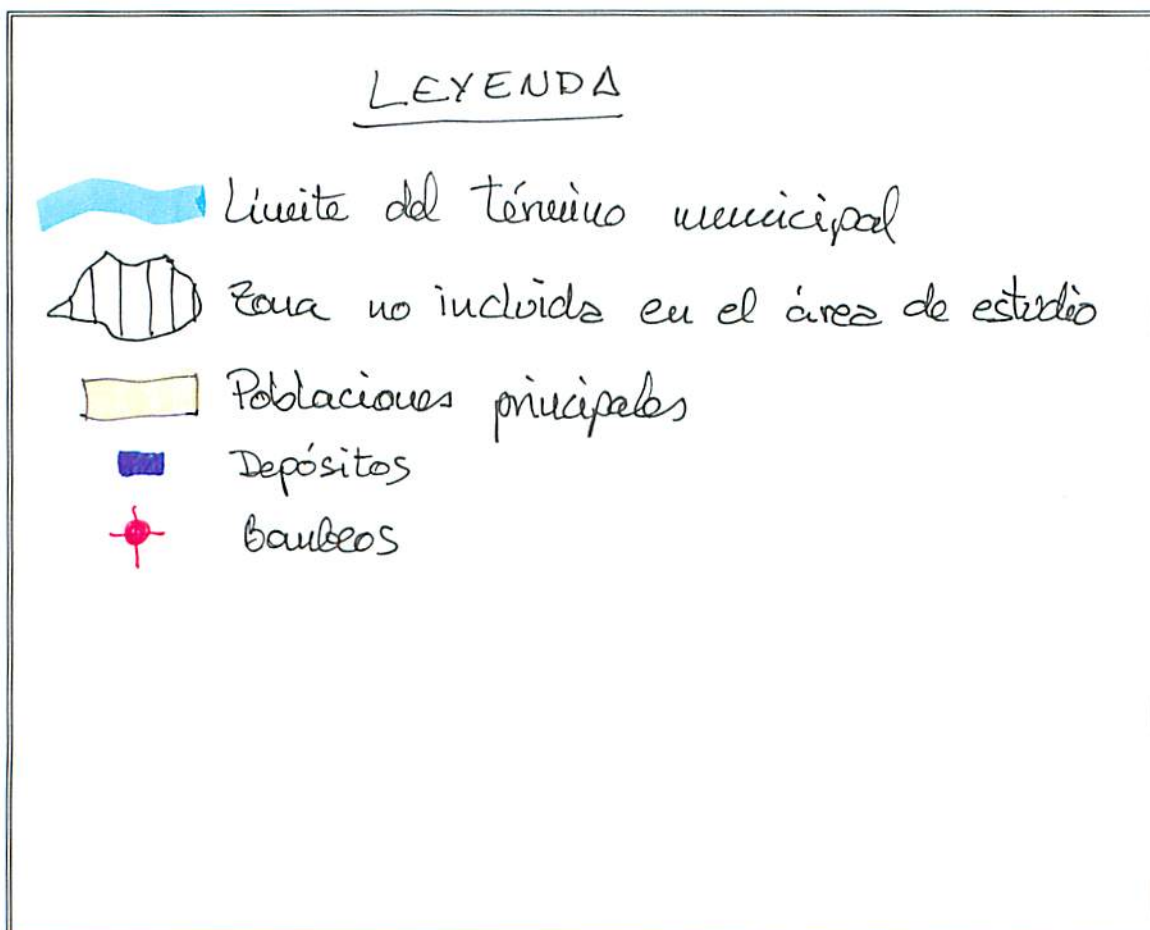 LEYENDA
Límite del término municipal
Zona no incluida en el área de estudio
Poblaciones principales
Depósitos
Bombeos